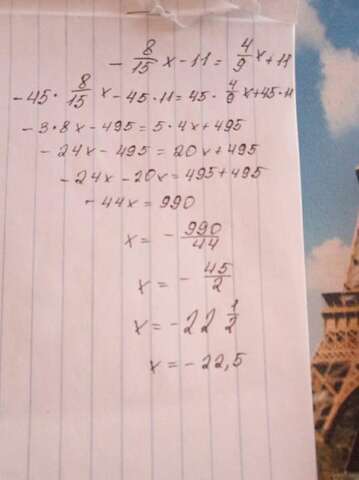 - 8/15 x - 11 = 4/9 x + 11
- 45 · 8/15 x - 45 · 11 = 45 · 4/9 x + 45 · 11
- 3 · 8x - 495 = 5 · 4x + 495
- 24x - 495 = 20x + 495
- 24x - 20x = 495 + 495
- 44x = 990
x = - 990/44
x = - 45/2
x = - 22 1/2
x = - 22,5